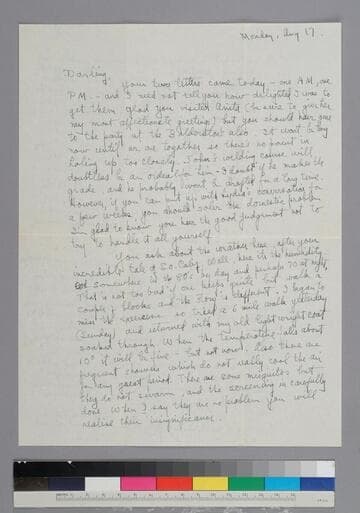 Monday, Aug 17.
Darling,
Your two letters came today – one AM, one
PM. – and I need not tell you how delighted I was to
get them. Glad you visited Anita (be sure to give her
my most affectionate greetings) but you should have gone
to the party at the Balderstons also. It won't be long
now until we are together so there's no point in
holing up too closely. John's welding course will
doubtless be an ordeal for him – I doubt if he makes the
grade, and he probably won't be drafted for a long time.
However, if you can put up with conversation for
a few weeks, you should solve the domestic problem.
I'm glad to know you have the good judgment not to
try to handle it all yourself.
You ask about the weather here, after your
incredible tale of So. Calif. Well, here it's the humidity.
somewhere in the 80's by day and perhaps 70 at night.
That is not too bad if one keeps quiet but walk a
couple of blocks and the story is different. I began to
miss the exercise so tried a 6 mile walk yesterday
(Sunday) and returned with my old light weight coat
soaked through. When the temperature falls about
10° it will be fine – but not now. Also there are
frequent showers which do not really cool the air
for any great period. There are some mosquitos but
they do not swarm, and the screening is carefully
done. When I say they are no problem you will
realize their insignificance.